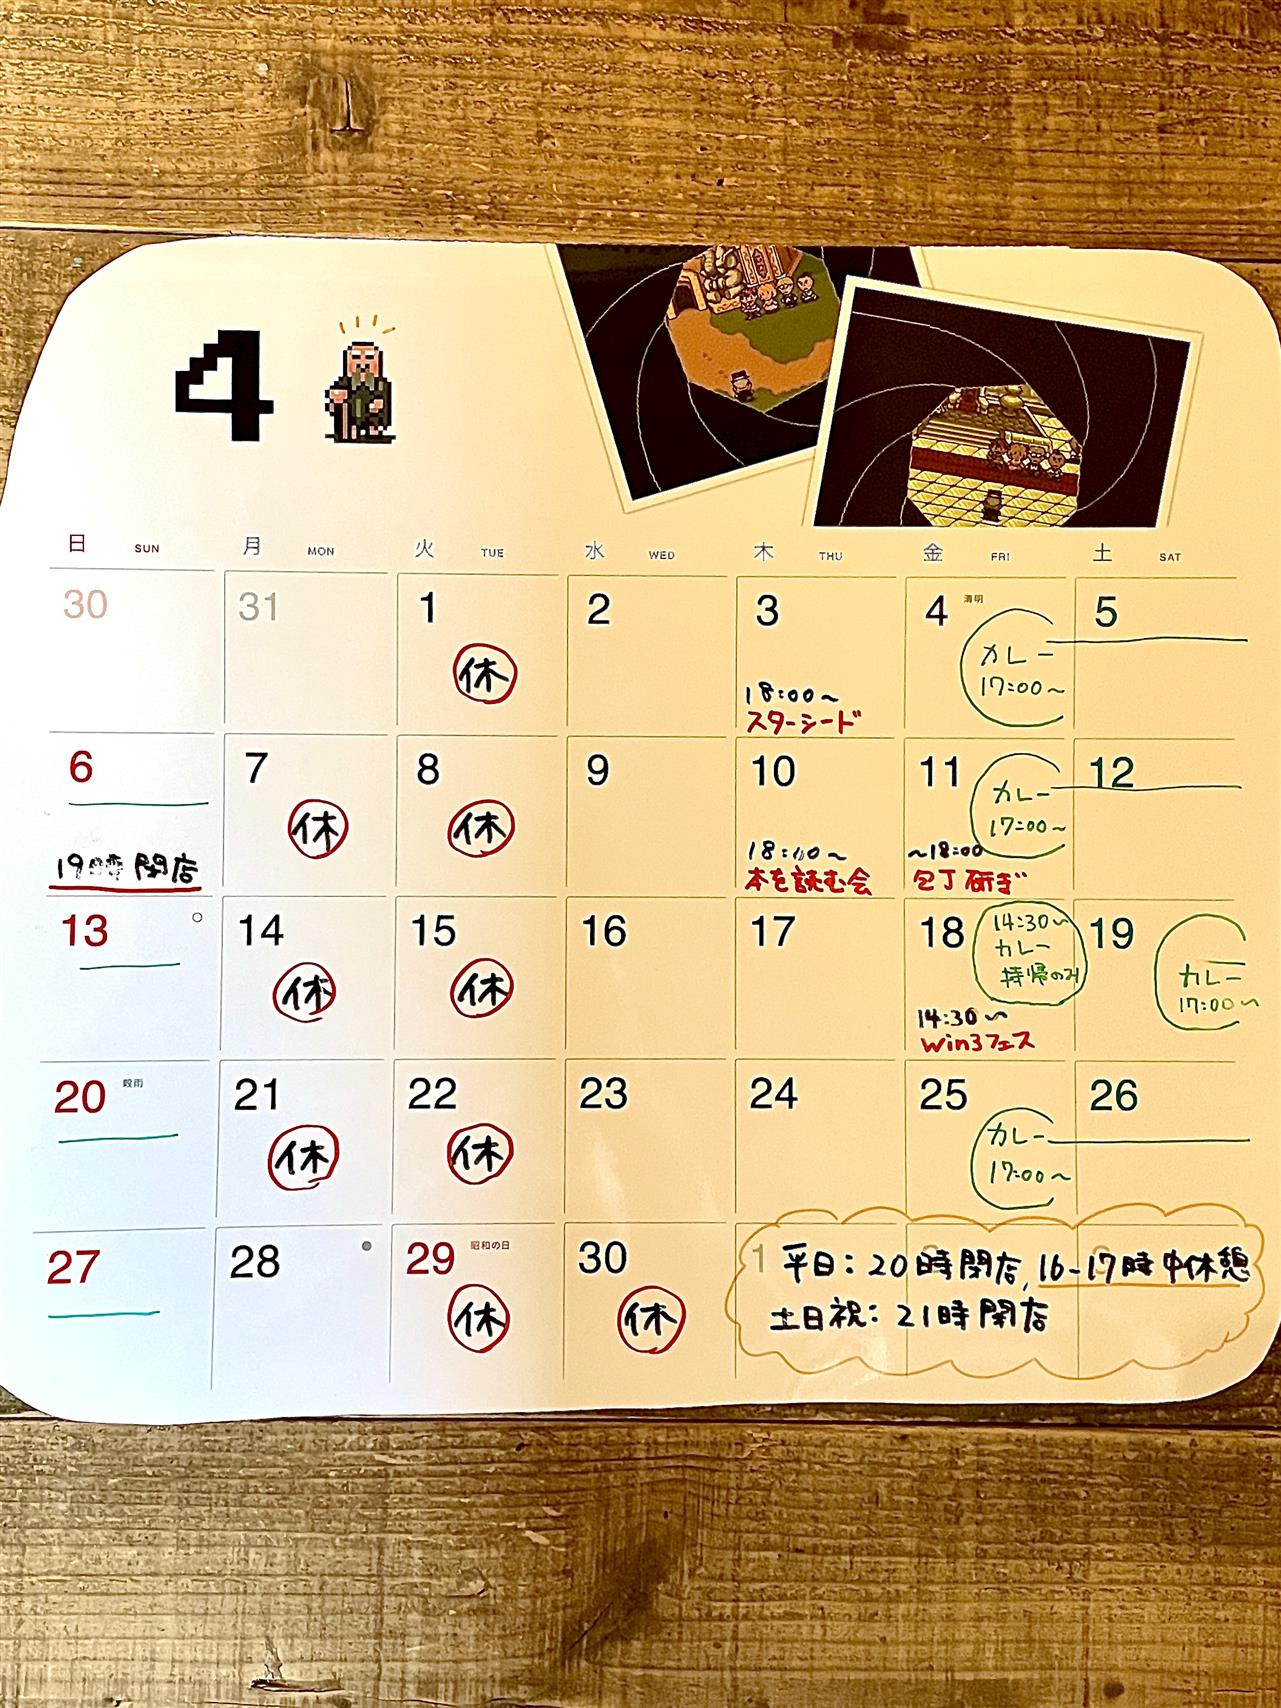 4
日 SUN 月 MON 火 TUE 水 WED 木 THU 金 FRI 土 SAT
30 31 1 2 3 4 清明 5
休
カレー
17:00〜
18:00〜
スターシード
6 7 8 9 10 11 12
休 休
カレー
17:00〜
19時閉店
18:00〜
本を読む会
〜18:00
包丁研ぎ
13 14 15 16 17 18 19
休 休
14:30〜
カレー
持帰のみ
カレー
17:00〜
14:30〜
Win3フェス
20 穀雨 21 22 23 24 25 26
休 休
カレー
17:00〜
27 28 29 昭和の日 30 1
休 休
平日：20時閉店, 16-17時中休憩
土日祝：21時閉店